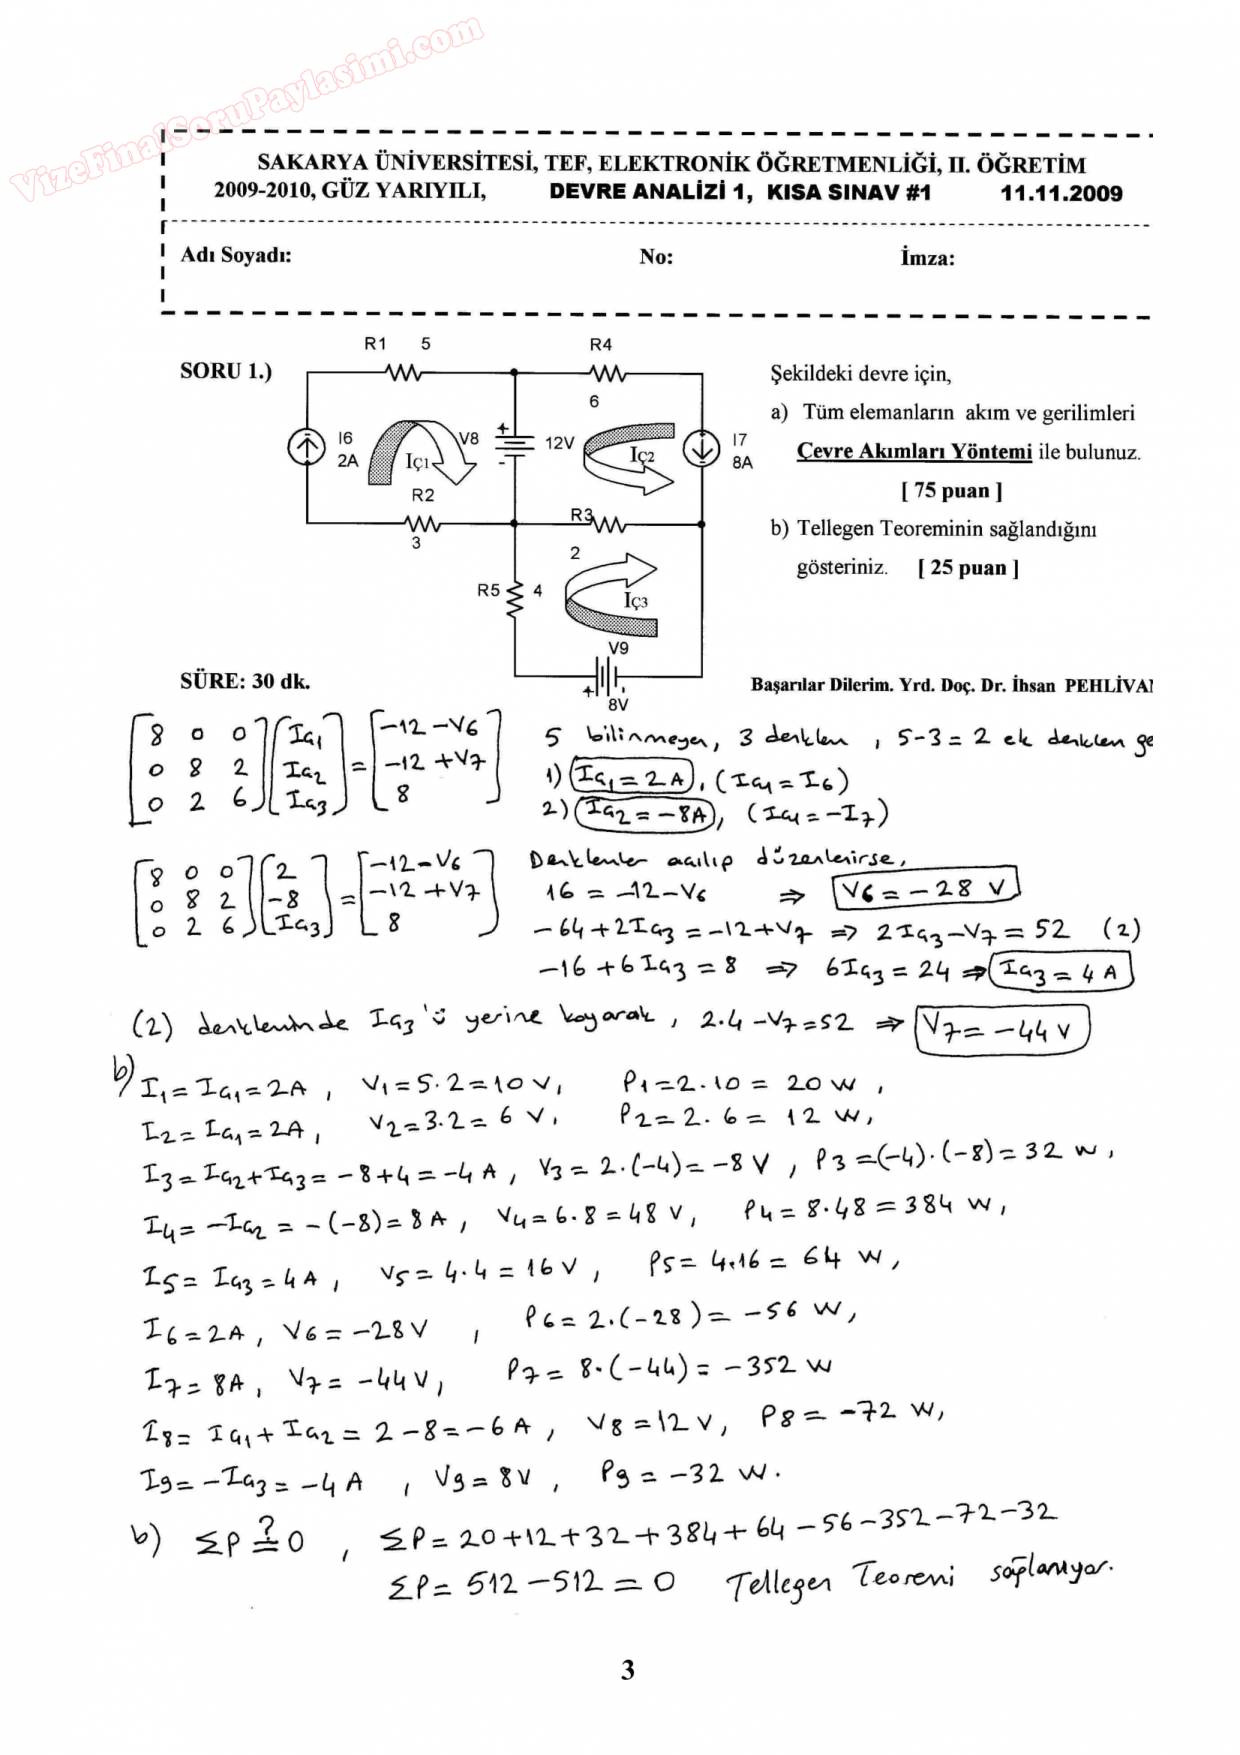 VizeFinalSoruPaylasimi.com
SAKARYA ÜNİVERSİTESİ, TEF, ELEKTRONİK ÖĞRETMENLİĞİ, II. ÖĞRETİM
2009-2010, GÜZ YARIYILI, DEVRE ANALİZİ 1, KISA SINAV #1 11.11.2009
Adı Soyadı: No: İmza:
SORU 1.)
R1 5
R4
6
I6
2A
V8
12V
+
-
I7
8A
İÇ1
İÇ2
R2
3
R3
2
R5 4
İÇ3
V9
+
8V
Şekildeki devre için,
a) Tüm elemanların akım ve gerilimleri
Çevre Akımları Yöntemi ile bulunuz.
[ 75 puan ]
b) Tellegen Teoreminin sağlandığını
gösteriniz. [ 25 puan ]
SÜRE: 30 dk.
Başarılar Dilerim. Yrd. Doç. Dr. İhsan PEHLİVAN
[8 0 0] [Iç1] = [-12-V6]
[0 8 2] [Iç2] = [-12+V7]
[0 2 6] [Iç3] = [8]
5 bilinmeyen, 3 denklem, 5-3=2 ek denklem ge
1) Iç1=2A, (Iç1=I6)
2) Iç2=-8A, (Iç1=-I7)
[8 0 0] [2] = [-12-V6]
[0 8 2] [-8] = [-12+V7]
[0 2 6] [Iç3] = [8]
Denklemler açılıp düzenlenirse,
16 = -12-V6 ⇒ V6=-28 V
-64+2Iç3=-12+V7 ⇒ 2Iç3-V7=52 (2)
-16+6Iç3=8 ⇒ 6Iç3=24 ⇒ Iç3=4 A
(2) denkleminde Iç3'ü yerine koyarak, 2.4-V7=52 ⇒ V7=-44 V
b)
I1=Iç1=2A, V1=5.2=10 V, P1=2.10=20 W,
I2=Iç1=2A, V2=3.2=6 V, P2=2.6=12 W,
I3=Iç2+Iç3=-8+4=-4 A, V3=2.(-4)=-8 V, P3=(-4).(-8)=32 W,
I4=-Iç2=-(-8)=8A, V4=6.8=48 V, P4=8.48=384 W,
I5=Iç3=4A, V5=4.4=16 V, P5=4.16=64 W,
I6=2A, V6=-28V, P6=2.(-28)=-56 W,
I7=8A, V7=-44V, P7=8.(-44)=-352 W
I8=Iç1+Iç2=2-8=-6 A, V8=12 V, P8=-72 W,
I9=-Iç3=-4 A, V9=8V, P9=-32 W.
b) ΣP ?= 0, ΣP=20+12+32+384+64-56-352-72-32
ΣP=512-512=0 Tellegen Teoremi sağlanıyor.
3